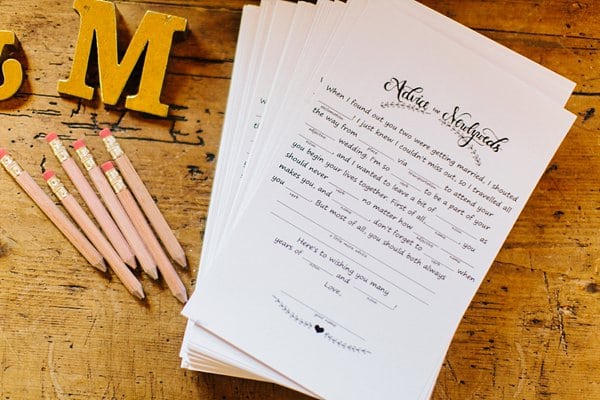 M
Advice for Newlyweds
When I found out you two were getting married, I shouted
! I just knew I couldn't miss out, so I travelled all
the way from via to attend your
wedding. I'm so to be a part of your
, and I wanted to leave a bit of as
you begin your lives together. First of all, , you
should never no matter how when
makes you, and , don't forget to
you . But most of all, you should both always
Here's to wishing you many
years of and !
Love,